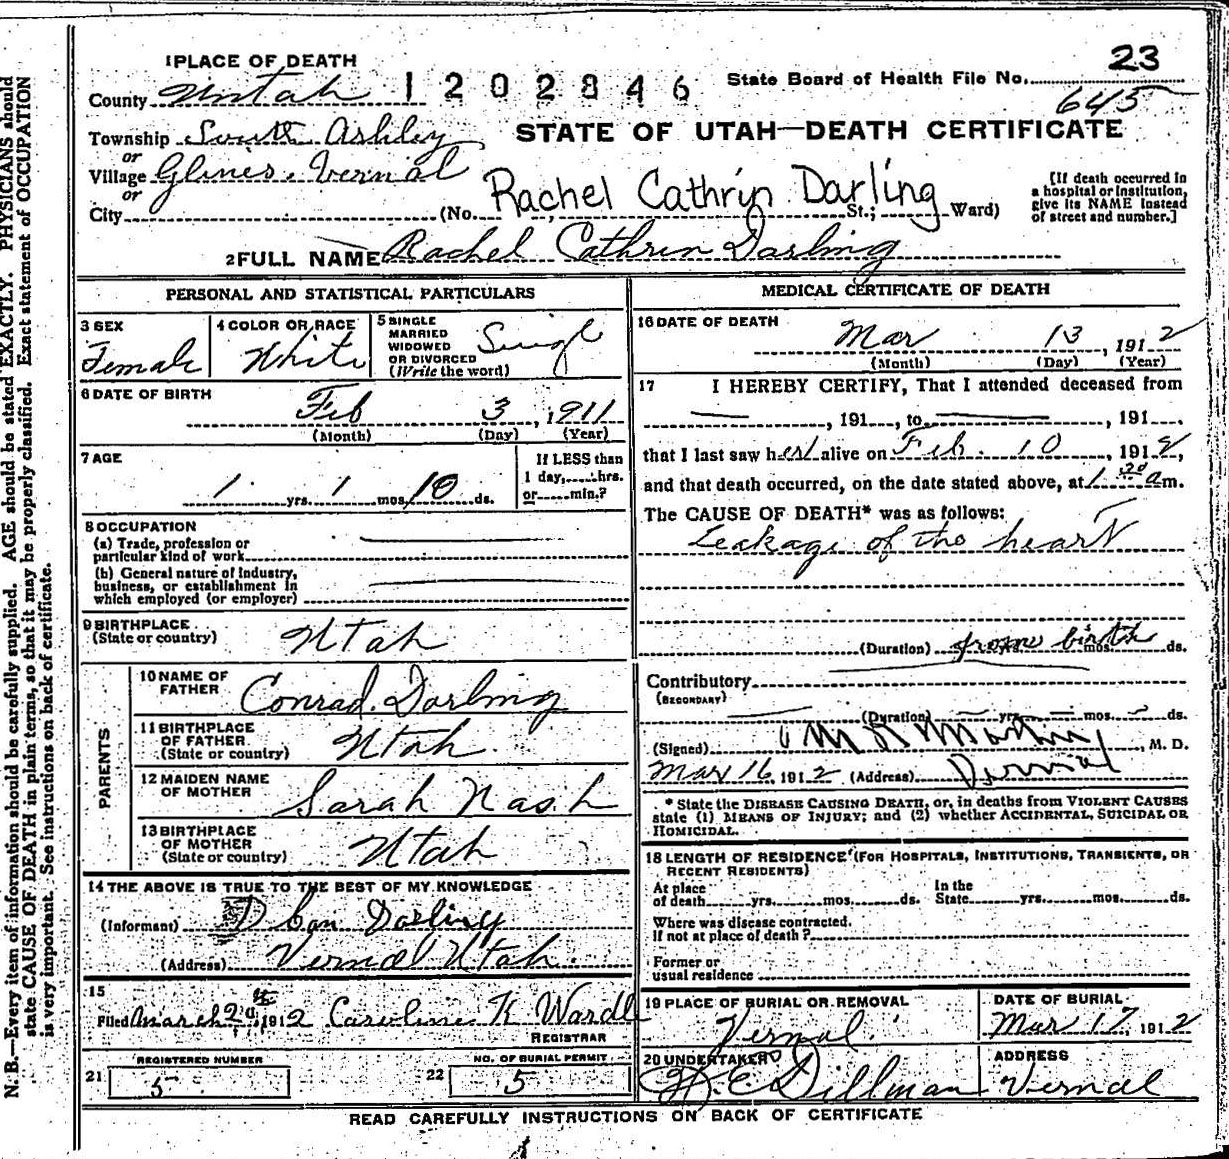 1 PLACE OF DEATH
County Uintah
1202846
State Board of Health File No. 23
645
Township South Ashley
or
Village Glines. Vernal
or
City (No. St.; Ward)
Rachel Cathrin Darling
STATE OF UTAH—DEATH CERTIFICATE
[If death occurred in
a hospital or institution,
give its NAME instead
of street and number.]
2 FULL NAME Rachel Cathrin Darling
PERSONAL AND STATISTICAL PARTICULARS
3 SEX
Female
4 COLOR OR RACE
White
5 SINGLE
MARRIED
WIDOWED
OR DIVORCED
(Write the word)
Singl
6 DATE OF BIRTH
Feb 3, 1911
(Month) (Day) (Year)
7 AGE
1 yrs. 1 mos. 10 ds.
If LESS than
1 day,.....hrs.
or.....min.?
8 OCCUPATION
(a) Trade, profession or
particular kind of work
(b) General nature of industry,
business, or establishment in
which employed (or employer)
9 BIRTHPLACE
(State or country)
Utah
PARENTS
10 NAME OF
FATHER
Conrad. Darling
11 BIRTHPLACE
OF FATHER
(State or country)
Utah.
12 MAIDEN NAME
OF MOTHER
Sarah Nash
13 BIRTHPLACE
OF MOTHER
(State or country)
Utah
14 THE ABOVE IS TRUE TO THE BEST OF MY KNOWLEDGE
(Informant) D Darling
(Address) Vernal Utah.
15
Filed March 1912 Caroline K Wardl
REGISTRAR
REGISTERED NUMBER
21 5
NO. OF BURIAL PERMIT
22 5
MEDICAL CERTIFICATE OF DEATH
16 DATE OF DEATH
Mar 13, 1912
(Month) (Day) (Year)
17 I HEREBY CERTIFY, That I attended deceased from
, 191...., to , 191....,
that I last saw her alive on Feb. 10, 1912,
and that death occurred, on the date stated above, at 1 30 am.
The CAUSE OF DEATH* was as follows:
Leakage of the heart
(Duration) from birth mos. ds.
Contributory
(SECONDARY)
(Duration) yrs. mos. ds.
(Signed) , M. D.
Mar 16, 1912 (Address) Vernal
* State the DISEASE CAUSING DEATH, or, in deaths from VIOLENT CAUSES
state (1) MEANS OF INJURY; and (2) whether ACCIDENTAL, SUICIDAL OR
HOMICIDAL.
18 LENGTH OF RESIDENCE (FOR HOSPITALS, INSTITUTIONS, TRANSIENTS, OR
RECENT RESIDENTS)
At place
of death yrs. mos. ds.
In the
State yrs. mos. ds.
Where was disease contracted.
If not at place of death?
Former or
usual residence
19 PLACE OF BURIAL OR REMOVAL
Vernal
DATE OF BURIAL
Mar 17, 1912
20 UNDERTAKER
Dillman
ADDRESS
Vernal
READ CAREFULLY INSTRUCTIONS ON BACK OF CERTIFICATE
N. B.—Every item of information should be carefully supplied. AGE should be stated EXACTLY. PHYSICIANS should
state CAUSE OF DEATH in plain terms, so that it may be properly classified. Exact statement of OCCUPATION
is very important. See instructions on back of certificate.